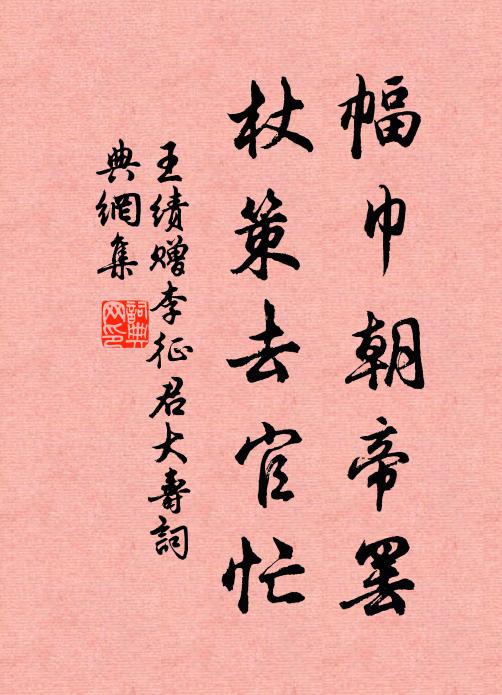 幅巾朝帝罢
杖策去官忙
王绩赠李征君大壽詞
典網集
詞典
网印